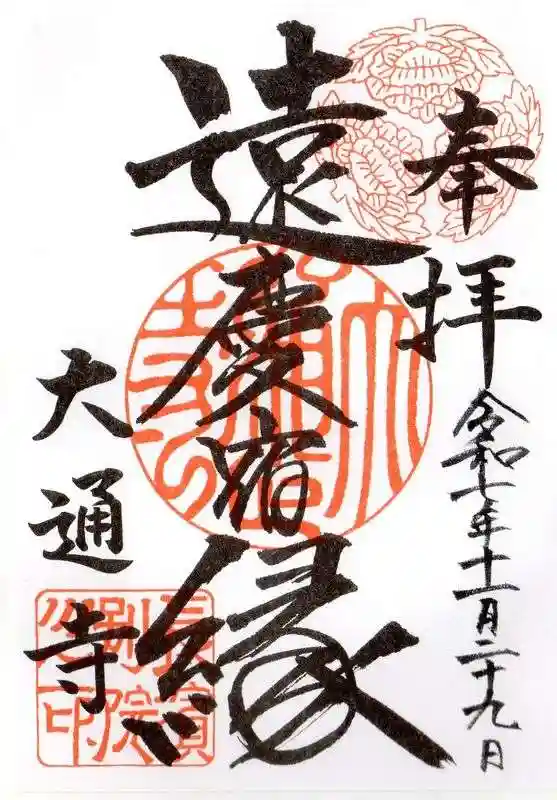 奉拝
令和七年十一月二十九日
遠慶宿縁
大通寺
長濱
別院